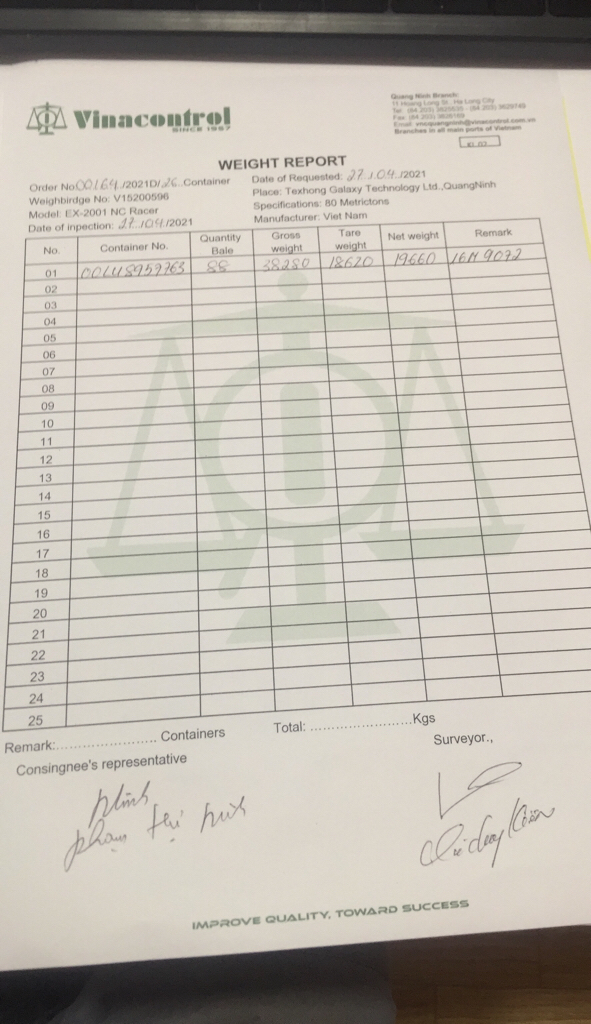 Vinacontrol
SINCE 1957
Quang Ninh Branch:
11 Hoang Long Str, Ha Long City
Branches in all main ports of Vietnam
WEIGHT REPORT
Order No: 00164 /2021D/26 Container
Date of Requested: 27/04/2021
Weighbirdge No: V15200596
Place: Texhong Galaxy Technology Ltd.,QuangNinh
Model: EX-2001 NC Racer
Specifications: 80 Metrictons
Date of inpection: 27/04/2021
Manufacturer: Viet Nam
No. Container No. Quantity Bale Gross weight Tare weight Net weight Remark
01 88 38280 18620 19660 16M 9072
02
03
04
05
06
07
08
09
10
11
12
13
14
15
16
17
18
19
20
21
22
23
24
25
Remark:........................ Containers Total: ........................Kgs
Consingnee's representative Surveyor.,
IMPROVE QUALITY, TOWARD SUCCESS